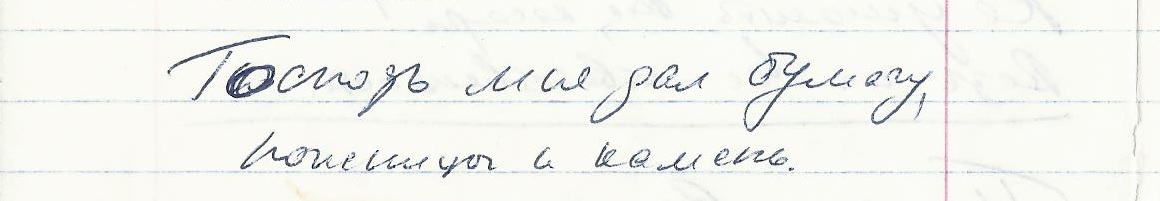 Господь мне дал бумагу,
ножницы и камень.